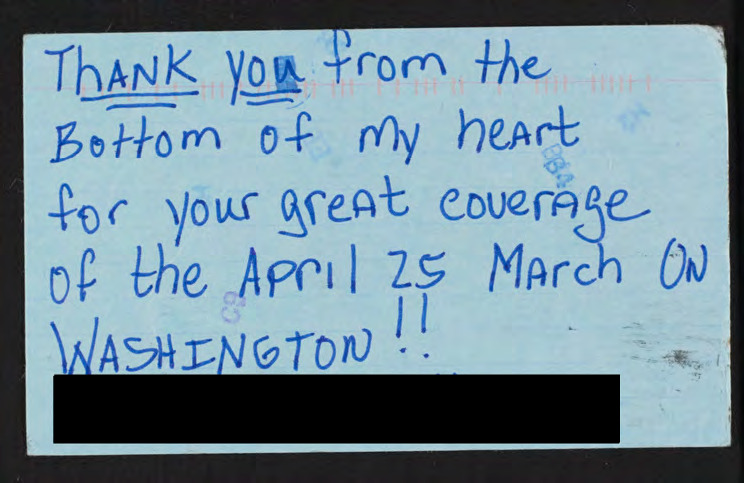 THANK YOU from the
Bottom of my heArt
for your greAt coverAge
of the April 25 MArch ON
WASHINGTON!!